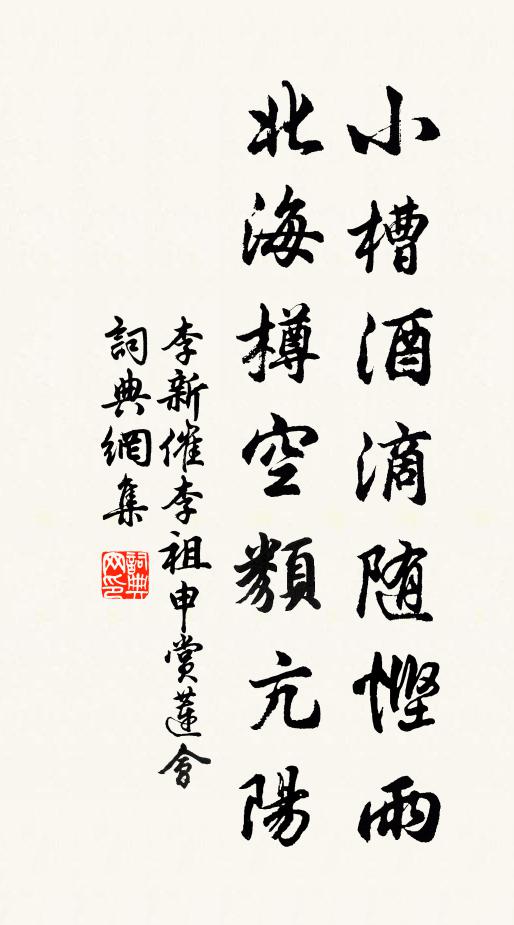 小槽酒滴随慳雨
北海樽空類亢陽
李新催李祖申賞蓮會
詞典網集
詞典网印